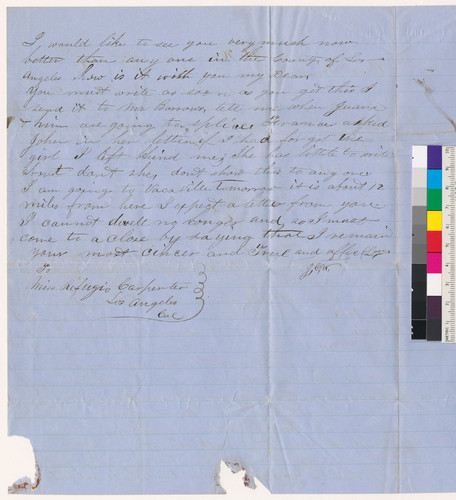 I, would like to see you very much now
better than any one in the County of Los
Angeles How is it with you my Dear
you must write as soon as you get this I
send it to Mr Barrows tell me when
& him are going to splice, asked
John in her letter if I had forgot the
girl I left behind me, she has little to write
dont she, dont show this to any one
I am going to Vacaville tomorrow it is about 12
miles from here I expect a letter from you
I cannot dwell no longer and so I must
come to a close by saying that I remain
your most cincer and True and affect
To
Miss Refugio Carpenter
Los Angeles
Cal